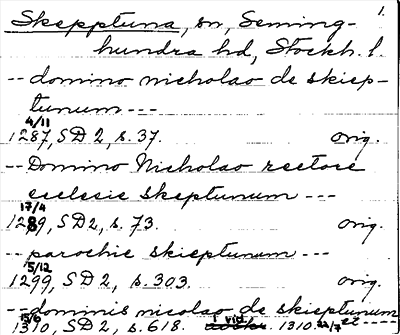 1.
Skepptuna, sn, Seming-
hundra hd, Stockh. l.
-- domino nicholao de skiep-
tunum ---
4/11
1287, SD 2, s. 37. orig.
-- Domino Nicholao rectore
eclesie skeptunum ---
17/4
1289, SD 2, s. 73. orig.
-- parochie skieptunum ---
5/12
1299, SD 2, s. 303. orig.
-- dominis nicolao de skieptunum
et ----
15/6
1310, SD 2, s. 618. i vid. 1310 22/7